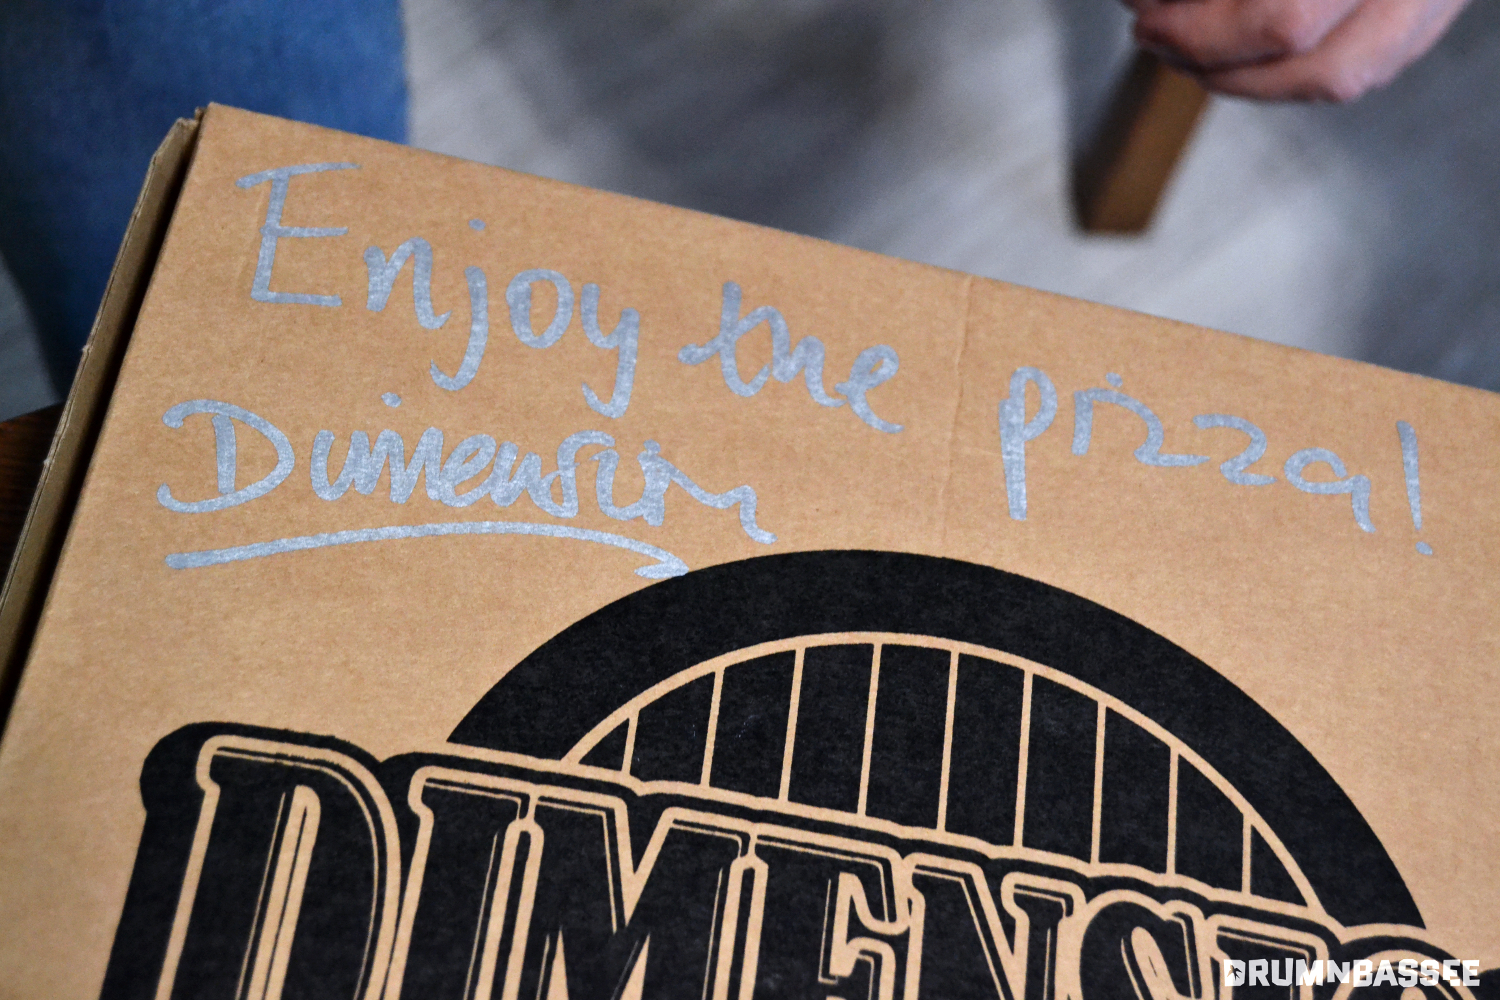 Enjoy the pizza!
Dimension
DIMENSIO
DRUMNBASSEE